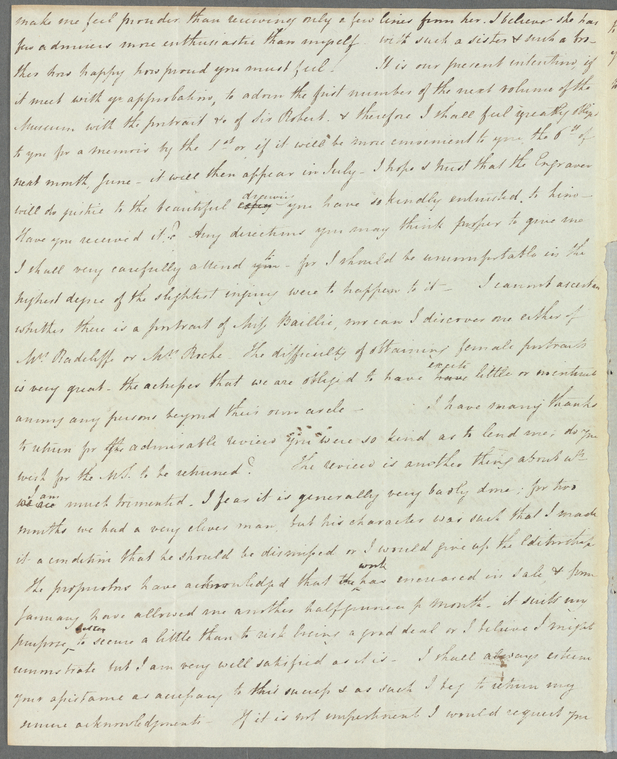 make me feel prouder than receiving only a few lines from her. I believe she has
few admirers more enthusiastic than myself with such a sister & such a bro-
ther how happy how proud you must feel. It is our present intention, if
it meet with yr approbation, to adorn the first number of the next volume of the
Museum with the portrait &c of Sir Robert. & therefore I shall feel greatly oblig
to you for a memoir by the 1st or if it will be more convenient to you the 6th of
next month, June - it will then appear in July - I hope & trust that the Engraver
will do justice to the beautiful drawing you have so kindly entrusted to him -
Have you received it? Any directions you may think proper to give me
I shall very carefully attend to - for I should be uncomfortable in the
highest degree if the slightest injury were to happen to it - I cannot ascertain
whether there is a portrait of Miss Baillie, nor can I discover one either of
Mrs Radcliffe or Mrs Roche. The difficulty of obtaining female portraits
is very great - the actresses that we are obliged to have excite little or no interest
among any persons beyond their own circle - I have many thanks
to return for the admirable reviews you were so kind as to lend me; do you
wish for the MS. to be returned? The review is another thing about wh
I am much tormented. I fear it is generally very badly done; for two
months we had a very clever man, but his character was such that I made
it a condition that he should be dismissed or I would give up the Editorship
The proprietors have acknowledged that the work has increased in sale, & from
January have allowed me another half guinea p month - it suits my
purpose better to secure a little than to risk losing a good deal or I believe I might
remonstrate but I am very well satisfied as it is - I shall always esteem
your assistance as accessary to this success & as such I beg to return my
sincere acknowledgments - If it is not impertinent I would request you